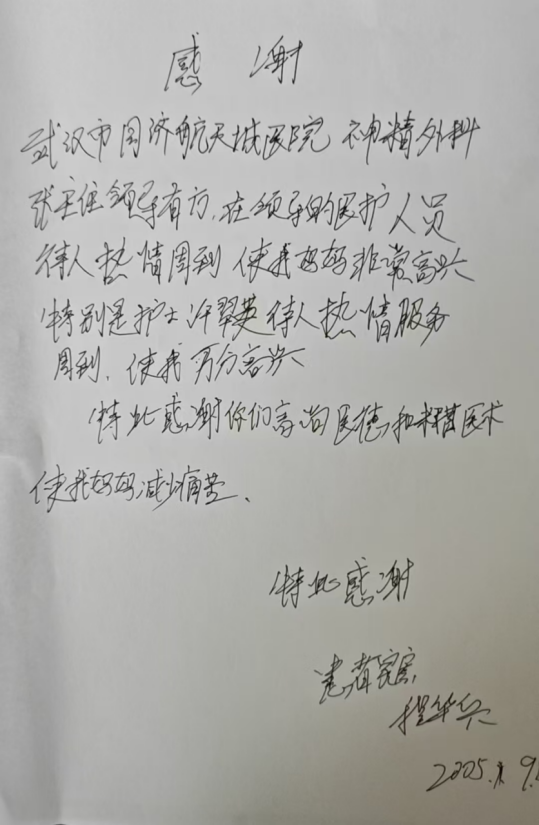 感 谢
武汉市同济航天城医院 神精外科
张主任领导有方,在领导的医护人员
待人热情周到 使我妈妈非常高兴
特别是护士许翠英待人热情服务
周到,使我万分高兴
特此感谢你们高尚医德和精医术
使我妈妈减少痛苦、
特此感谢
患者家属
程华兵
2005.1.9